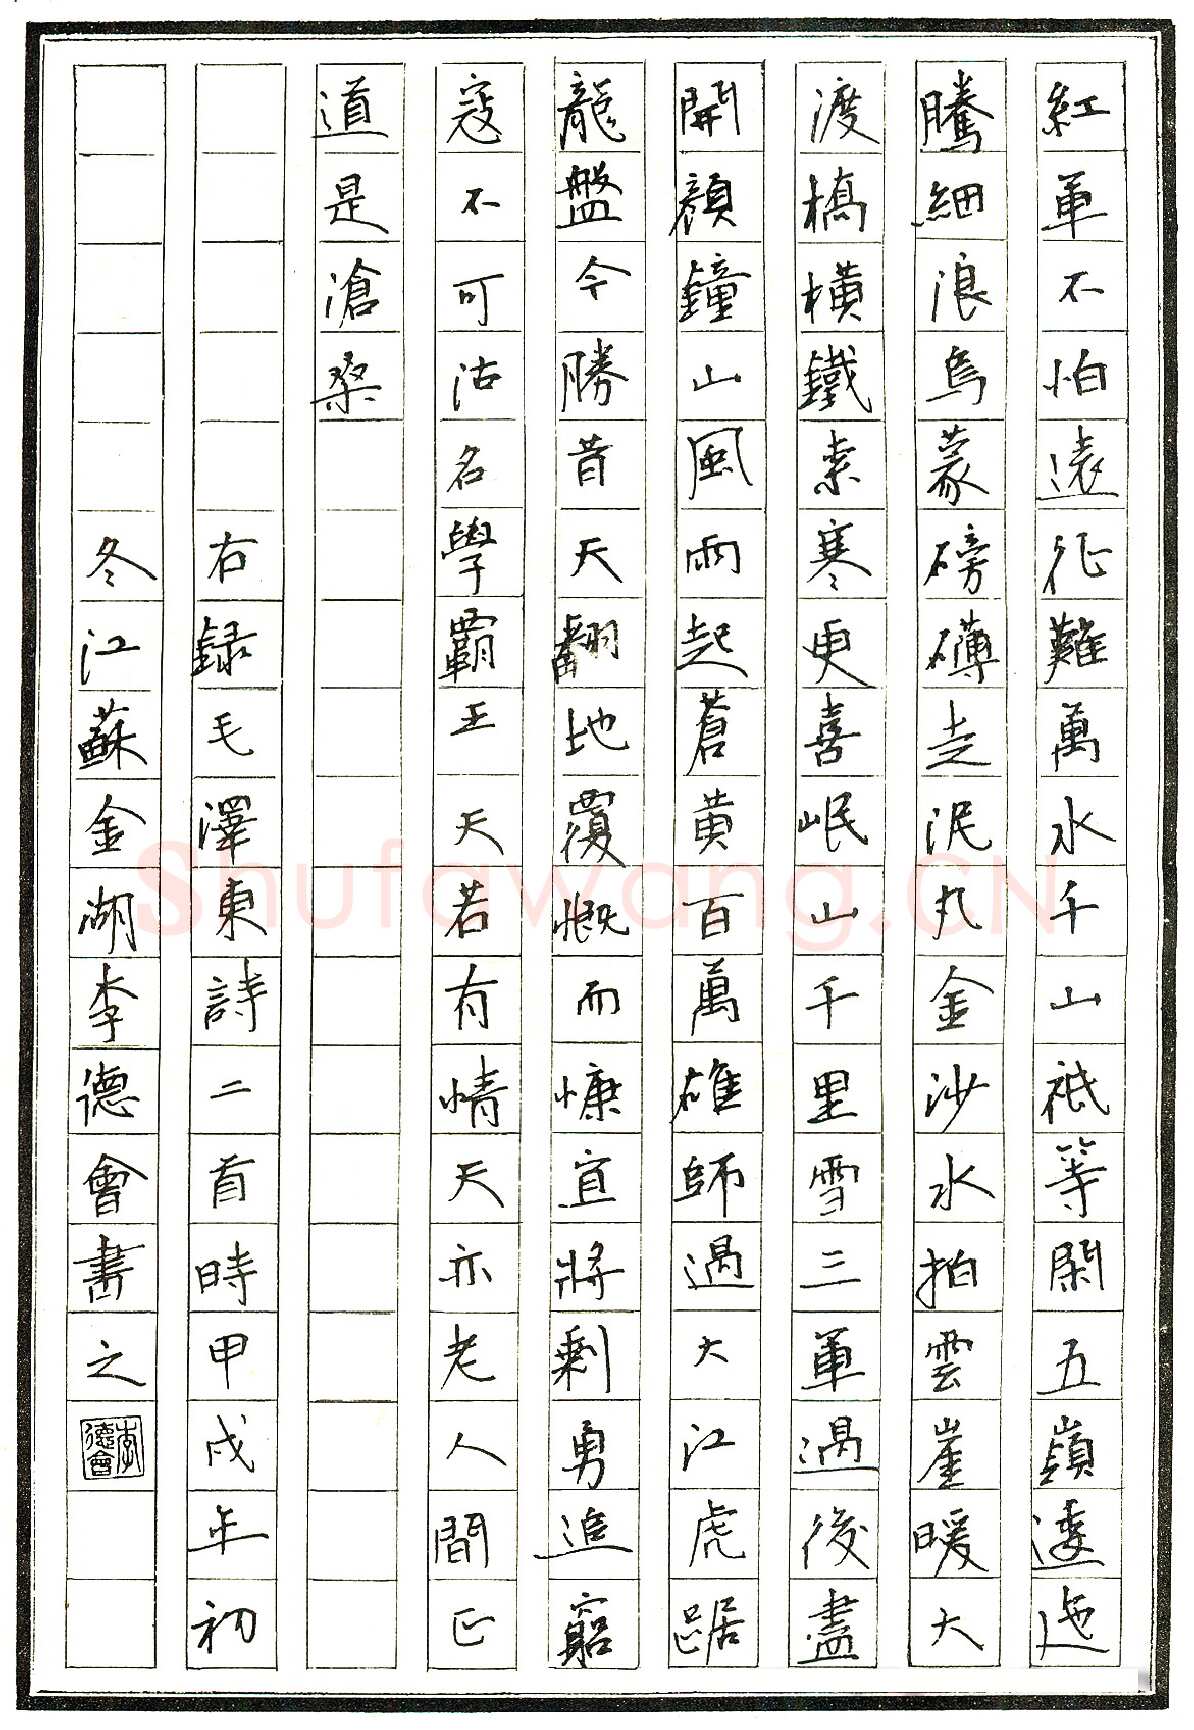 紅軍不怕遠征難萬水千山祇等閑五嶺逶迤
騰細浪烏蒙磅礴走泥丸金沙水拍雲崖暖大
渡橋橫鐵索寒更喜岷山千里雪三軍過後盡
開顏鐘山風雨起蒼黃百萬雄師過大江虎踞
龍盤今勝昔天翻地覆慨而慷宜將剩勇追窮
寇不可沽名學霸王天若有情天亦老人間正
道是滄桑
右録毛澤東詩二首時甲戌年初
冬江蘇金湖李德會書之
李德會
Shufawang.CN